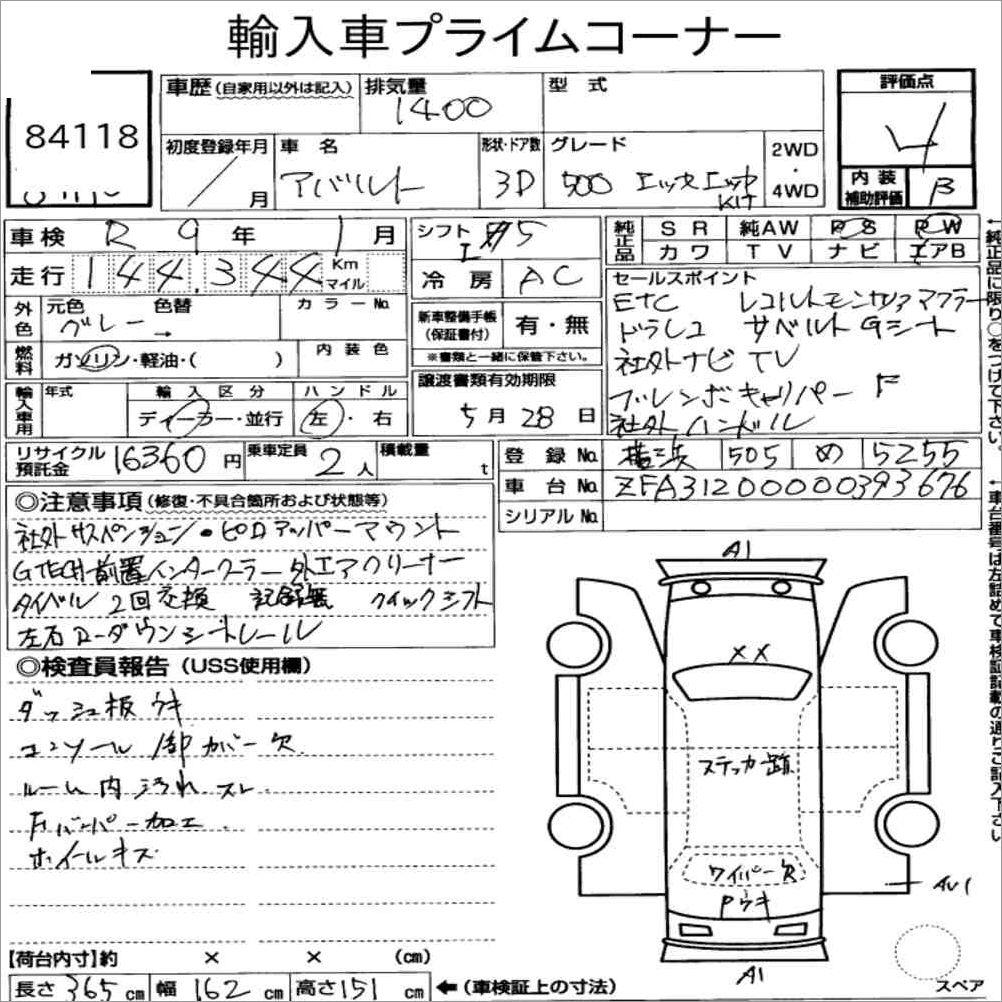 輸入車プライムコーナー
84118
車歴 (自家用以外は記入)
排気量
1400
型式
評価点
4
初度登録年月
/ 月
車名
アバルト
形状・ドア数
3D
グレード
500 エッセエッセ
KIT
2WD
・
4WD
内装
補助評価
B
車検 R 9 年 1 月
シフト
I 5
純正品
SR 純AW PS PW
カワ TV ナビ エアB
走行 144,344 Km
マイル
冷房 AC
セールスポイント
ETC レコルトモンツァマフラー
ドラレコ サベルト Gシート
社外ナビ TV
ブレンボキャリパー F
社外ハンドル
外色
元色 色替 カラーNo
グレー →
新車整備手帳
(保証書付)
有・無
※書類と一緒に保管下さい。
燃料
ガソリン・軽油・( )
内装色
輸入車用
年式
輸入区分
ディーラー・並行
ハンドル
左・右
譲渡書類有効期限
5 月 28 日
リサイクル
預託金
16360 円
乗車定員
2 人
積載量
t
登録No 横浜 505 め 5255
車台No ZFA31200000393676
シリアルNo
◎注意事項 (修復・不具合箇所および状態等)
社外サスペンション・ピロアッパーマウント
GTECH前置インタークーラー 外エアクリーナー
タイベル 2回交換 記録無 クイックシフト
左右ローダウンシートレール
◎検査員報告 (USS使用欄)
ダッシュ板ウキ
コンソール 1部カバー欠
ルーム内汚れスレ
Fバンパー加工
ホイールキズ
A1
XX
ステッカー跡
ワイパー欠
Pウキ
AU1
A1
スペア
【荷台内寸】約 × × (cm)
長さ 365 cm 幅 162 cm 高さ 151 cm ←(車検証上の寸法)
↑純正品に限り○をつけて下さい。
↑車台番号は左詰めで車検証記載の通りご記入下さい